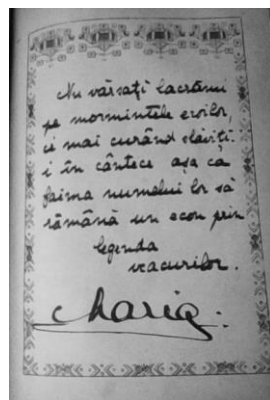 Nu vărsați lacrămi
pe mormintele eroilor,
ci mai curând slăviți-
i în cântece așa ca
faima numelui lor să
rămână un ecou prin
legenda
veacurilor.
Maria.